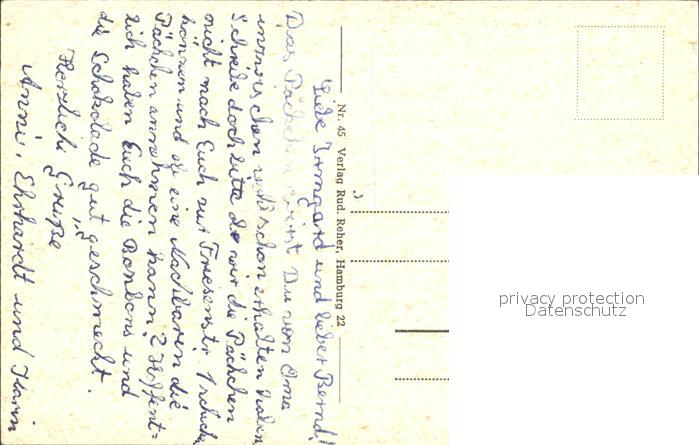 Liebe Irmgard und lieber Bernd!
Das Päckchen wirst Du von Oma
inzwischen schon erhalten haben
Schreibe doch bitte ob wir die Päckchen
nicht nach Euch zur Friesenstr. schicken
können und ob eine Nachbarin die
Päckchen annehmen kann? Hoffent=
lich haben Euch die Bonbons und
die Schokolade gut geschmeckt.
Herzliche Grüße
Anni, Ehrhardt und Karin
Nr. 45 Verlag Rud. Reher, Hamburg 22
privacy protection
Datenschutz